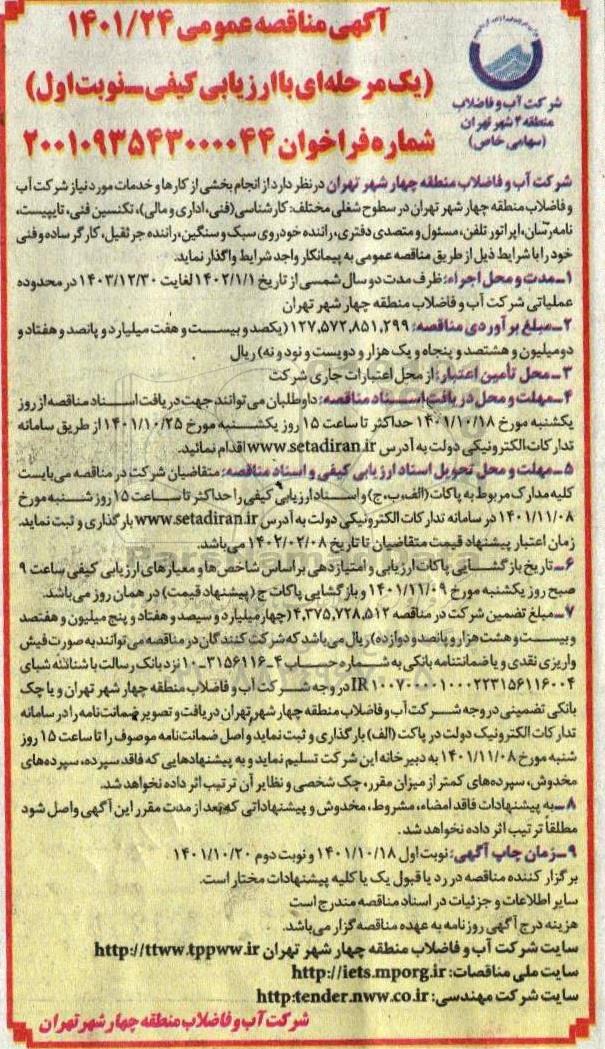 آگهی مناقصه عمومی ۱۴۰۱/۲۴
(یک مرحله‌ای با ارزیابی کیفی ـ نوبت اول)
شماره فراخوان ۲۰۰۱۰۹۳۵۴۳۰۰۰۰۴۴
شرکت آب و فاضلاب
منطقه ۴ شهر تهران
(سهامی خاص)
شرکت آب و فاضلاب منطقه چهار شهر تهران در نظر دارد از انجام بخشی از کارها و خدمات مورد نیاز شرکت آب
و فاضلاب منطقه چهار شهر تهران در سطوح شغلی مختلف: کارشناسی (فنی، اداری و مالی)، تکنسین فنی، تایپیست،
نامه‌رسان، اپراتور تلفن، مسئول و متصدی دفتری، راننده خودروی سبک و سنگین، راننده جرثقیل، کارگر ساده و فنی
خود را با شرایط ذیل از طریق مناقصه عمومی به پیمانکار واجد شرایط واگذار نماید.
۱ـ مدت و محل اجراء: ظرف مدت دو سال شمسی از تاریخ ۱۴۰۲/۱/۱ لغایت ۱۴۰۳/۱۲/۳۰ در محدوده
عملیاتی شرکت آب و فاضلاب منطقه چهار شهر تهران
۲ـ مبلغ برآوردی مناقصه: ۱۲۷,۵۷۲,۸۵۱,۲۹۹ (یکصد و بیست و هفت میلیارد و پانصد و هفتاد و
دو میلیون و هشتصد و پنجاه و یک هزار و دویست و نود و نه) ریال
۳ـ محل تأمین اعتبار: از محل اعتبارات جاری شرکت
۴ـ مهلت و محل دریافت اسناد مناقصه: داوطلبان می‌توانند جهت دریافت اسناد مناقصه از روز
یکشنبه مورخ ۱۴۰۱/۱۰/۱۸ حداکثر تا ساعت ۱۵ روز یکشنبه مورخ ۱۴۰۱/۱۰/۲۵ از طریق سامانه
تدارکات الکترونیکی دولت به آدرس www.setadiran.ir اقدام نمائید.
۵ـ مهلت و محل تحویل اسناد ارزیابی کیفی و اسناد مناقصه: متقاضیان شرکت در مناقصه می‌بایست
کلیه مدارک مربوط به پاکات (الف، ب، ج) و اسناد ارزیابی کیفی را حداکثر تا ساعت ۱۵ روز شنبه مورخ
۱۴۰۱/۱۱/۰۸ در سامانه تدارکات الکترونیکی دولت به آدرس www.setadiran.ir بارگذاری و ثبت نماید.
زمان اعتبار پیشنهاد قیمت متقاضیان تا تاریخ ۱۴۰۲/۰۲/۰۸ می‌باشد.
۶ـ تاریخ بازگشایی پاکات ارزیابی و امتیازدهی براساس شاخص‌ها و معیارهای ارزیابی کیفی ساعت ۹
صبح روز یکشنبه مورخ ۱۴۰۱/۱۱/۰۹ و بازگشایی پاکات ج (پیشنهاد قیمت) در همان روز می‌باشد.
۷ـ مبلغ تضمین شرکت در مناقصه ۴,۳۷۵,۷۲۸,۵۱۲ (چهار میلیارد و سیصد و هفتاد و پنج میلیون و هفتصد
و بیست و هشت هزار و پانصد و دوازده) ریال می‌باشد که شرکت کنندگان در مناقصه می‌توانند به صورت فیش
واریزی نقدی و یا ضمانتنامه بانکی به شماره حساب ۴ـ۳۱۵۶۱۱۶ـ۱۰ نزد بانک رسالت با شناسه شبای
در وجه شرکت آب و فاضلاب منطقه چهار شهر تهران و یا چک
بانکی تضمینی در وجه شرکت آب و فاضلاب منطقه چهار شهر تهران دریافت و تصویر ضمانت‌نامه را در سامانه
تدارکات الکترونیک دولت در پاکت (الف) بارگذاری و ثبت نماید و اصل ضمانت‌نامه موصوف را تا ساعت ۱۵ روز
شنبه مورخ ۱۴۰۱/۱۱/۰۸ به دبیرخانه این شرکت تسلیم نماید و به پیشنهادهایی که فاقد سپرده، سپرده‌های
مخدوش، سپرده‌های کمتر از میزان مقرر، چک شخصی و نظایر آن ترتیب اثر داده نخواهد شد.
۸ـ به پیشنهادات فاقد امضاء، مشروط، مخدوش و پیشنهاداتی که بعد از مدت مقرر این آگهی واصل شود
مطلقاً ترتیب اثر داده نخواهد شد.
۹ـ زمان چاپ آگهی: نوبت اول ۱۴۰۱/۱۰/۱۸ و نوبت دوم ۱۴۰۱/۱۰/۲۰
برگزار کننده مناقصه در رد یا قبول یک یا کلیه پیشنهادات مختار است.
سایر اطلاعات و جزئیات در اسناد مناقصه مندرج است
هزینه درج آگهی روزنامه به عهده مناقصه گزار می‌باشد.
سایت شرکت آب و فاضلاب منطقه چهار شهر تهران http://ttww.tppww.ir
سایت ملی مناقصات: http://iets.mporg.ir
سایت شرکت مهندسی: http:tender.nww.co.ir
شرکت آب و فاضلاب منطقه چهار شهر تهران